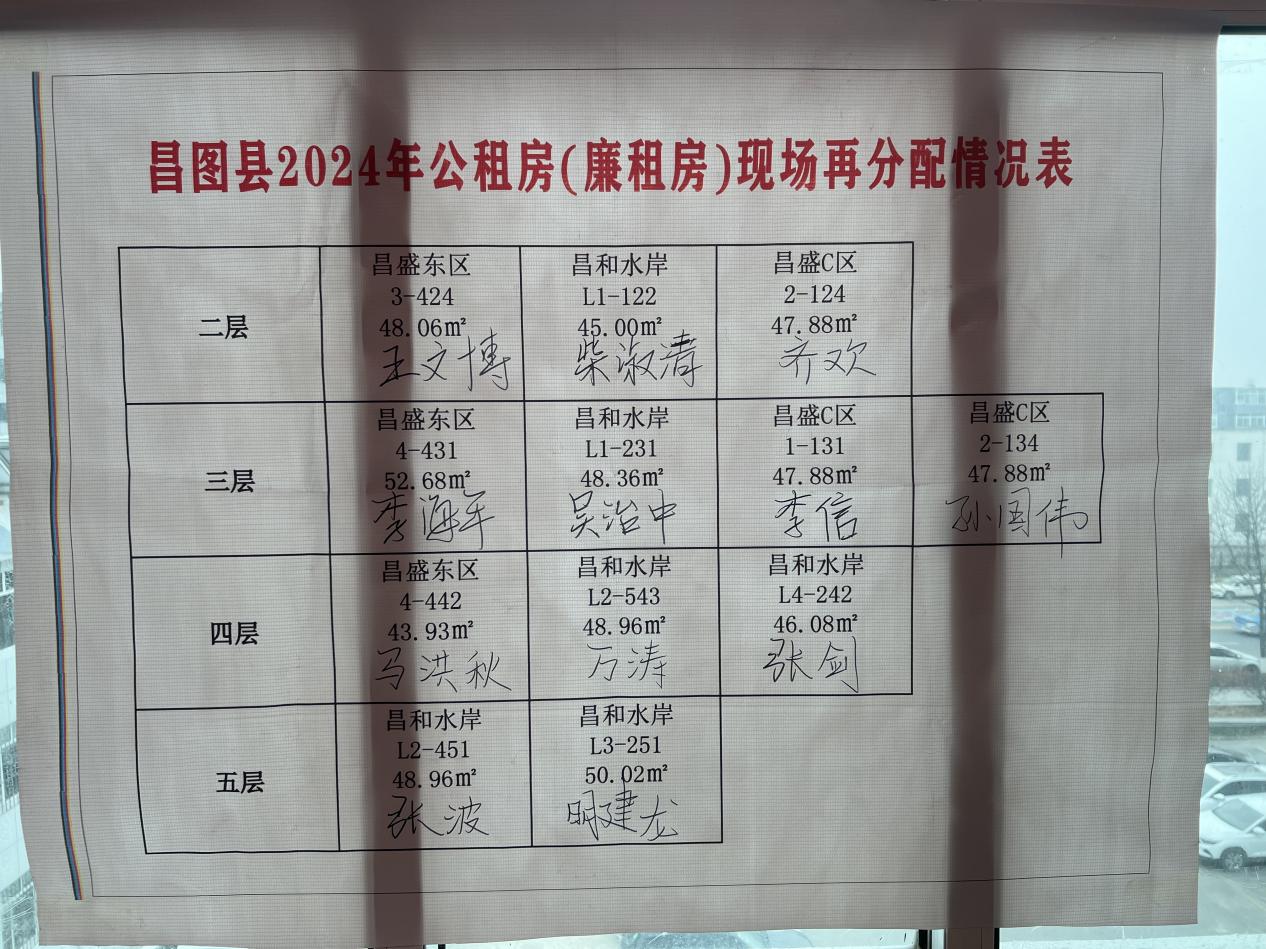 昌图县2024年公租房(廉租房)现场再分配情况表
二层
昌盛东区
3-424
48.06㎡
王文博
昌和水岸
L1-122
45.00㎡
柴淑清
昌盛C区
2-124
47.88㎡
齐欢
三层
昌盛东区
4-431
52.68㎡
李海军
昌和水岸
L1-231
48.36㎡
吴治中
昌盛C区
1-131
47.88㎡
李信
昌盛C区
2-134
47.88㎡
孙国伟
四层
昌盛东区
4-442
43.93㎡
马洪秋
昌和水岸
L2-543
48.96㎡
万涛
昌和水岸
L4-242
46.08㎡
张剑
五层
昌和水岸
L2-451
48.96㎡
张波
昌和水岸
L3-251
50.02㎡
明建龙